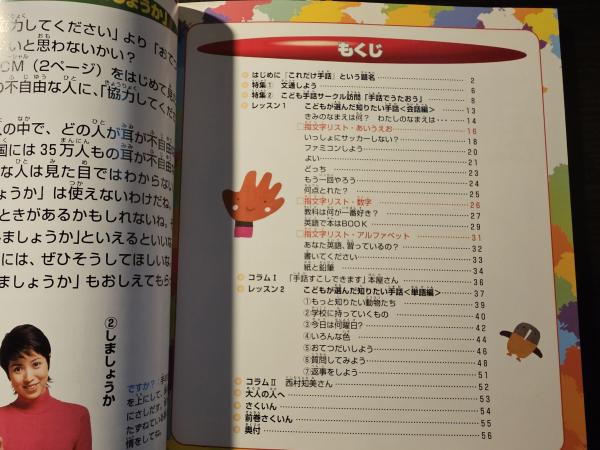 しょうか」
協力してください」より「おて
いと思わないかい?
CM(2ページ)をはじめて見
不自由な人に、「協力してくだ
の中で、どの人が耳が不自由
国には35万人もの耳が不自由
な人は見た目ではわからない
ょうか」は使えないわけだね。
ときがあるかもしれないね。そ
ましょうか」といえるといいな
には、ぜひそうしてほしいな。
ましょうか」もおしえてもら
②しましょうか
ですか?
もくじ
はじめに「これだけ手話」という題名 2
特集① 文通しよう 6
特集② こども手話サークル訪問「手話でうたおう」 8
レッスン1 こどもが選んだ知りたい手話<会話編> 13
きみのなまえは何? わたしのなまえは・・・ 14
□指文字リスト・あいうえお 16
いっしょにサッカーしない? 18
ファミコンしよう 20
よい 21
どっち 23
もう一回やろう 24
何点とれた? 25
□指文字リスト・数字 26
教科は何が一番好き? 27
英語で本はBOOK 29
□指文字リスト・アルファベット 31
あなた英語、習っているの? 32
書いてください 33
紙と鉛筆 34
コラムⅠ 「手話すこしできます」本屋さん 36
レッスン2 こどもが選んだ知りたい手話<単語編> 37
①もっと知りたい動物たち 39
②学校に持っていくもの 40
③今日は何曜日? 42
④いろんな色 44
⑤おてつだいしよう 46
⑥質問してみよう 48
⑦返事をしよう 51
コラムⅡ 西村知美さん 52
大人の人へ 53
さくいん 54
前巻さくいん 55
奥付 56